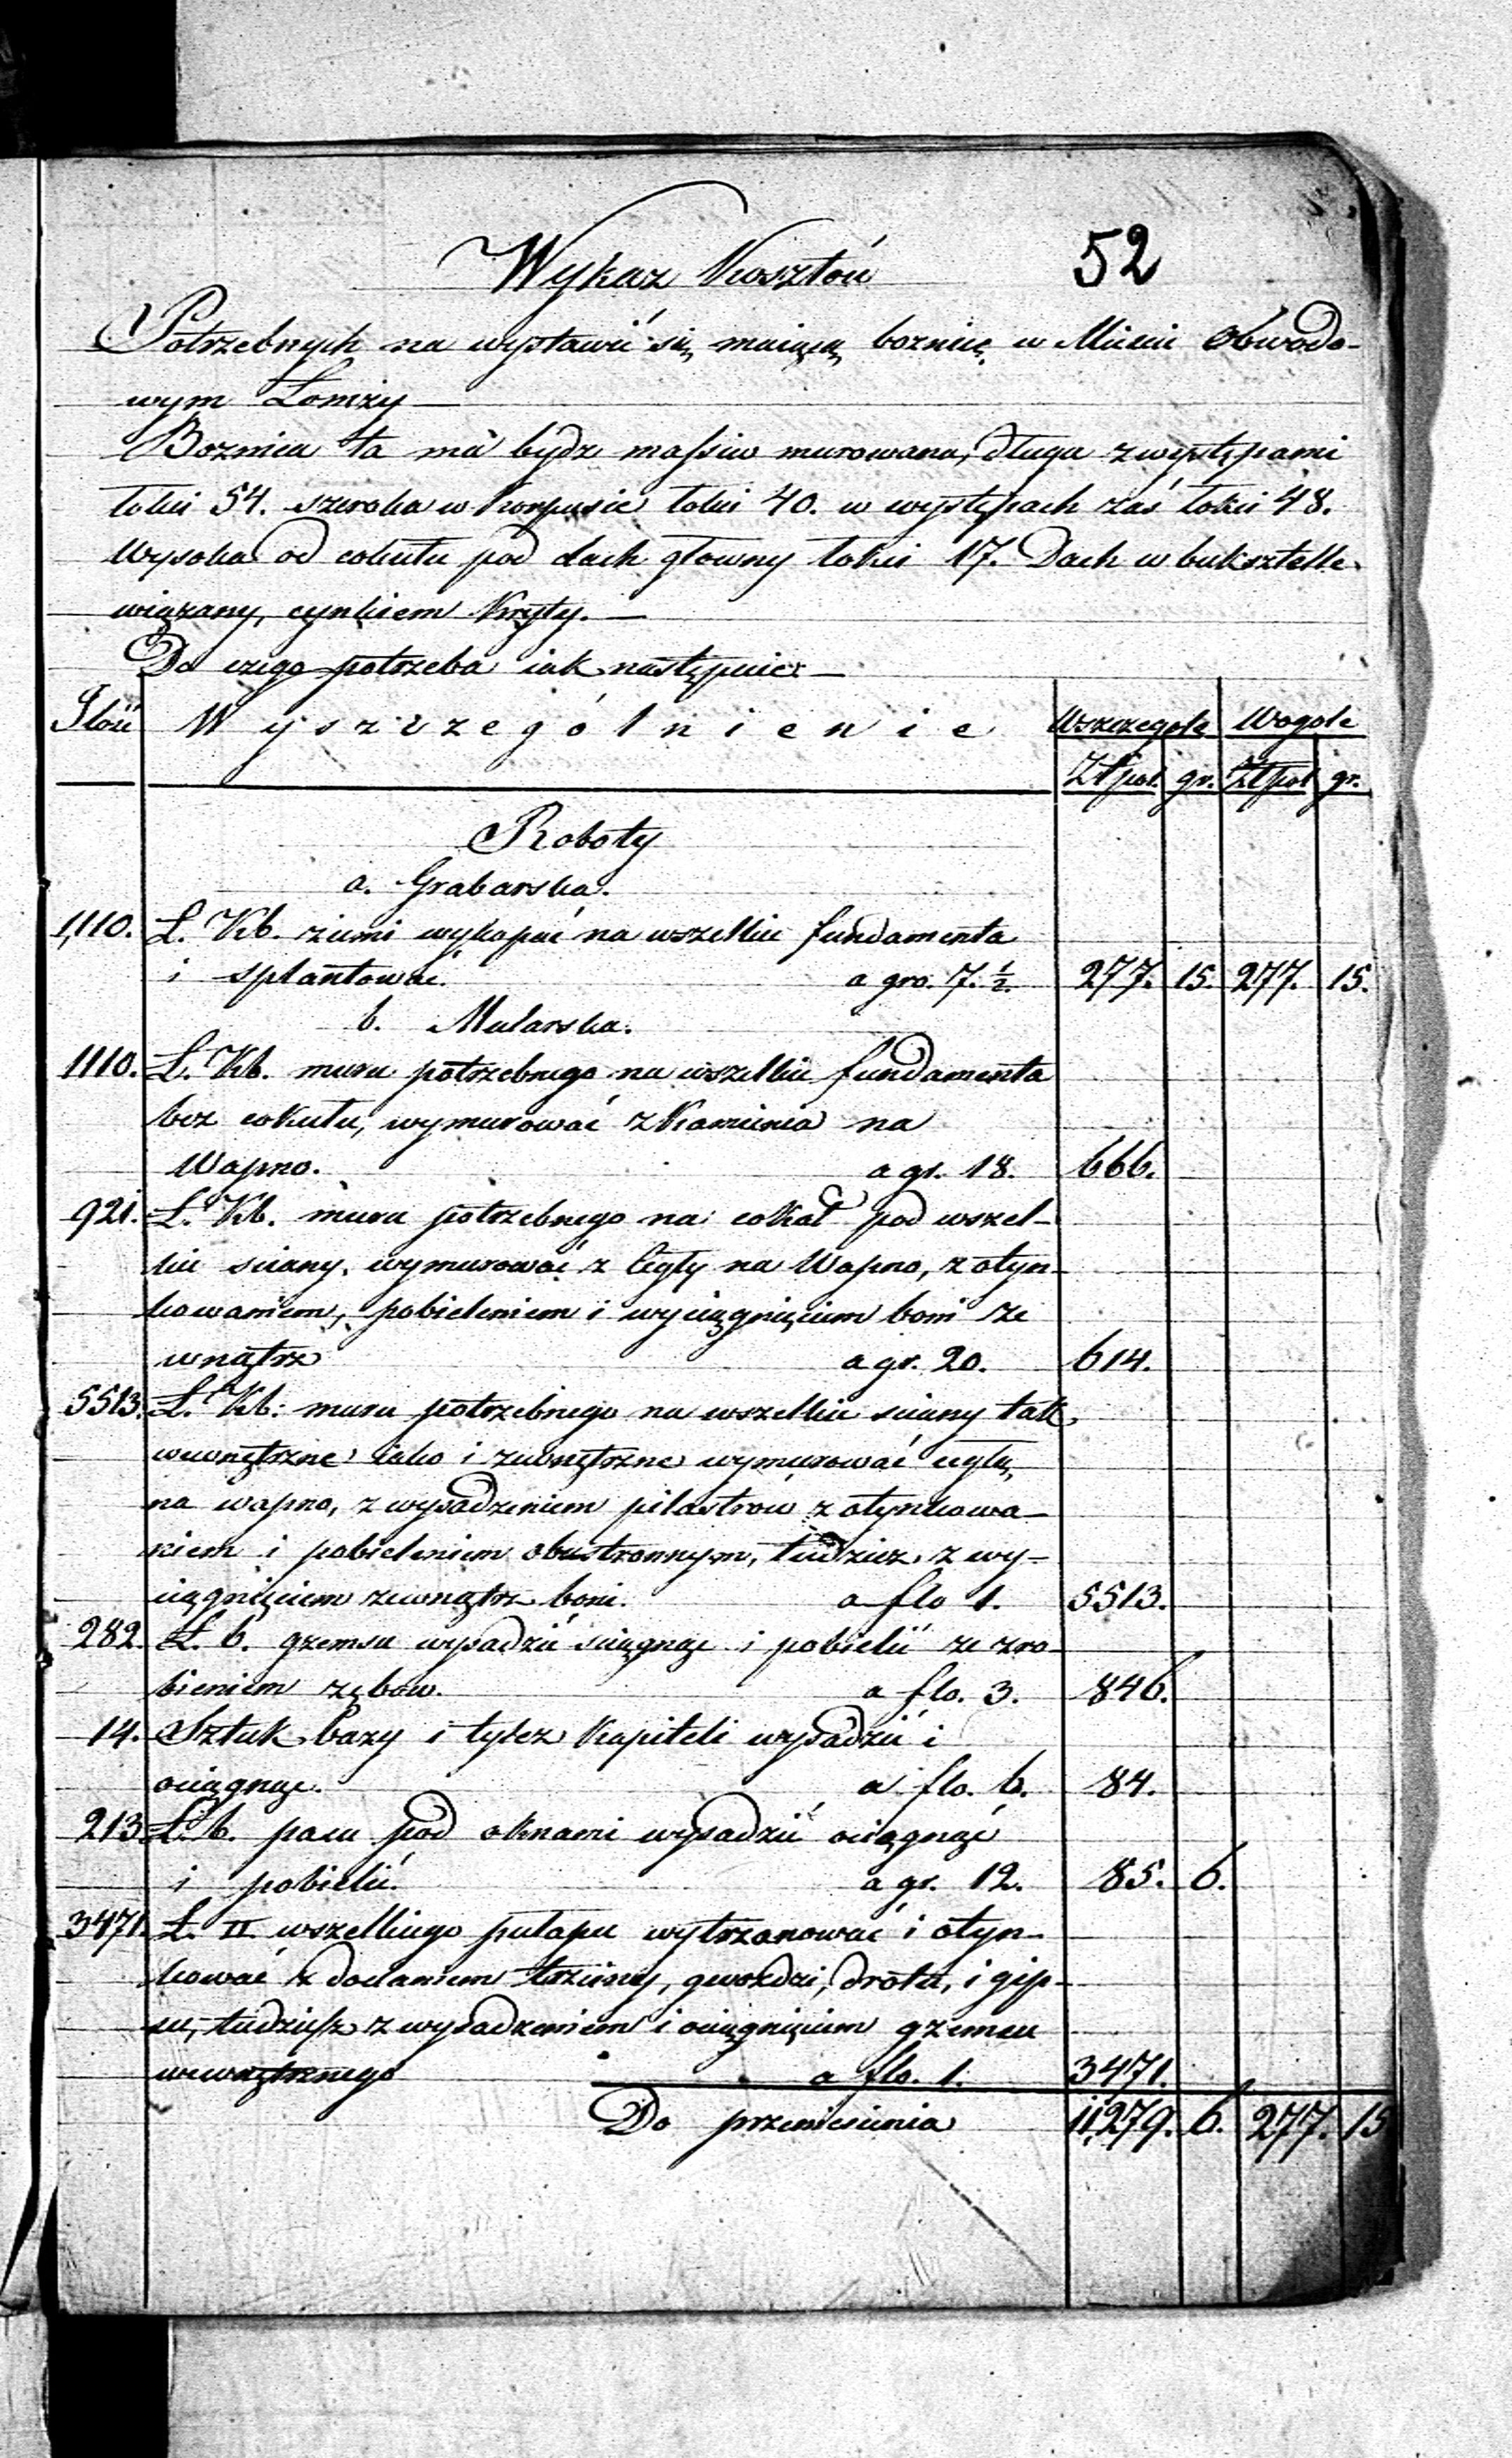 Wykaz Kosztów 52
Potrzebnych na wystawić się maiącą boznicę w Mieście Obwodo-
wym Łomży —
Boznica ta ma bydz massiw murowana, długa z występami
łokci 54. szeroka w Korpusie łokci 40. w występach zaś łokci 48.
Wysoka od cokułu pod dach głowny łokci 17. Dach w buksztelle
wiązany, cynkiem Kryty. —
Do czego potrzeba iak następuie: —
Ilość Wyszczególnienie Wszczegole Wogole
Złpol. gr. Złpol gr.
Roboty
a. Grabarska.
1,110. Ł. Kb. ziemi wykopać na wszelkie fundamenta
i splantować. a gro. 7. ½. 277. 15. 277. 15.
b. Mularska.
1110. Ł. Kb. muru potrzebnego na wszelkie fundamenta
bez cokułu, wymurować z Kamienia na
Wapno. a gr. 18. 666.
921. Ł. Kb. muru potrzebnego na cokoł pod wszel-
kie sciany, wymurować z Cegły na Wapno, z otyn-
kowaniem, pobieleniem i wyciągnięciem boni ze
wnątrz a gr. 20. 614.
5513. Ł. Kb: muru potrzebnego na wszelkie sciany tak
wewnętrzne iako i zewnętrzne wymurować cegłą,
na wapno, z wysadzeniem pilastrów z otynkowa-
niem i pobieleniem obustronnym, tudziez z wy-
ciągnięciem zewnątrz boni. a flo 1. 5513.
282. Ł. b. gzemsu wysadzić sciągnąc i pobielić ze zro-
bieniem zębow. a flo. 3. 846.
14. Sztuk bazy i tylez Kapiteli wysadzić i
ociągnąc. a flo. 6. 84.
213 Ł. b. pasu pod oknami wysadzić ociągnąć
i pobielić. a gr. 12. 85. 6.
3471. Ł. □ wszelkiego pułapu wytrzcnować i otyn-
kować z dodaniem trzciny, gwozdzi, drotu, i gip-
su, tudzież z wysadzeniem i ociągnięciem gzemsu
wewnętrznego a flo. 1. 3471.
Do przeniesienia 11,279. 6. 277. 15